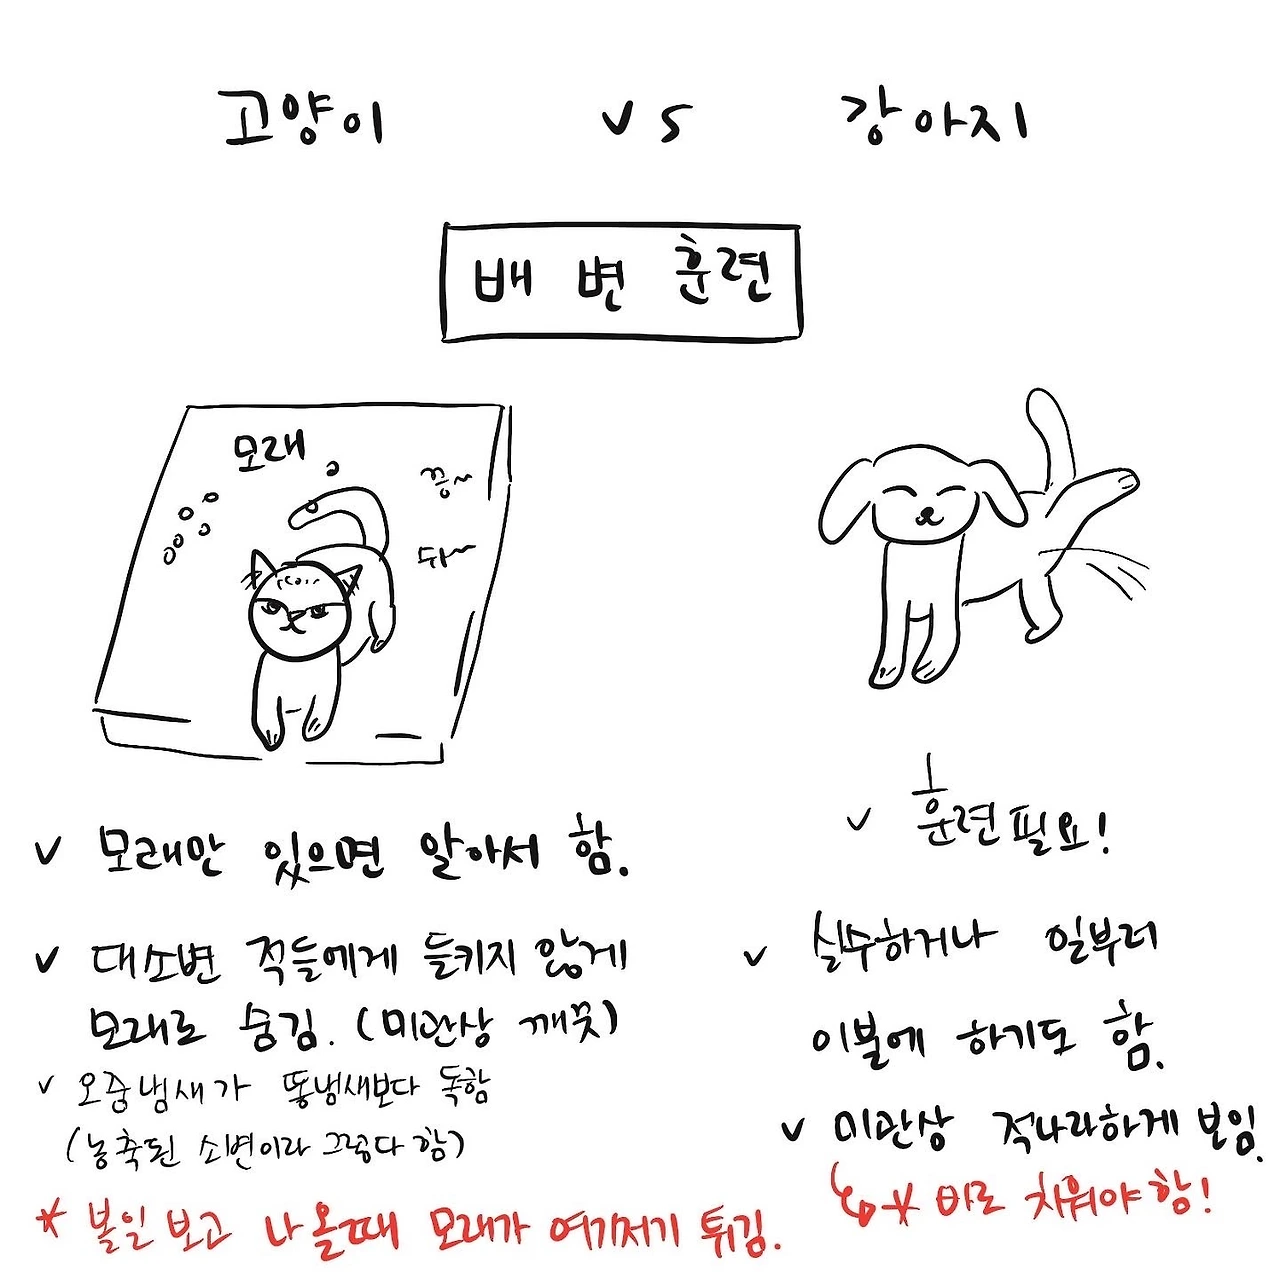 고양이 vs 강아지
배변훈련
모래
끙~
뒤~
v 모래만 있으면 알아서 함.
v 대소변 적들에게 들키지 않게
모래로 숨김. (미관상 깨끗)
v 오줌냄새가 똥냄새보다 독함
(농축된 소변이라 그렇다 함)
* 볼일 보고 나올때 모래가 여기저기 튀김.
v 훈련필요!
v 실수하거나 일부러
이불에 하기도 함.
v 미관상 적나라하게 보임.
* 바로 치워야함!